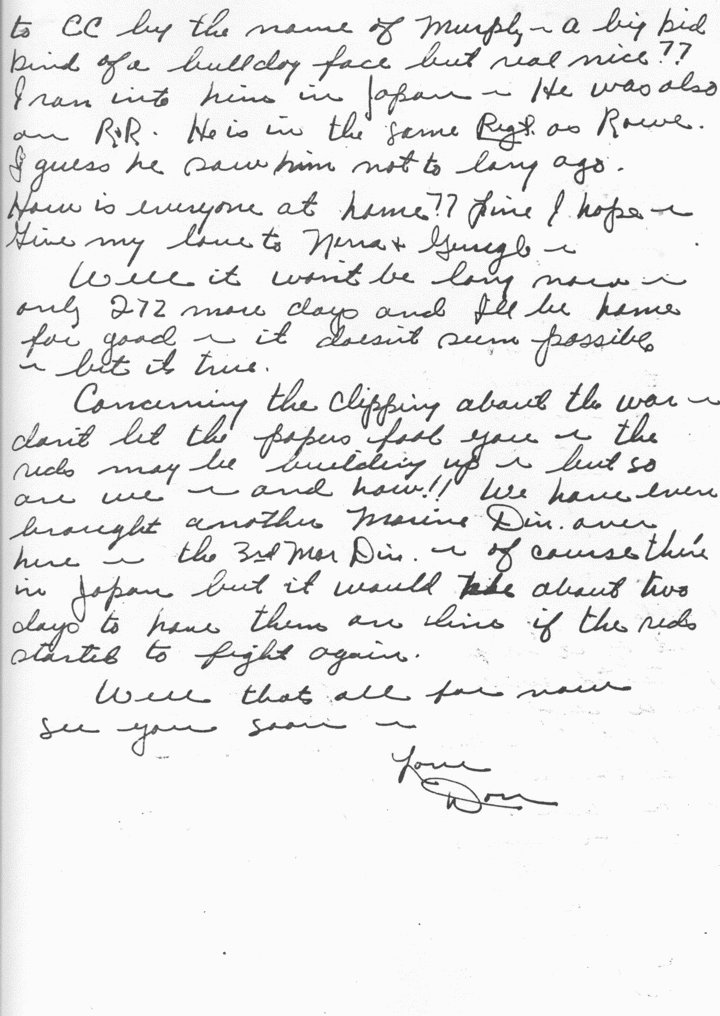 to CC by the name of Murphy ~ a big kid
kind of a bulldog face but real nice??
I ran into him in Japan ~ He was also
on R+R. He is in the same Regt. as Rowe.
I guess he saw him not to long ago.
How is everyone at home?? Fine I hope ~
Give my love to Nona +
Well it won't be long now ~
only 272 more days and I'll be home
for good ~ it doesn't seem possible
~ but its true.
Concerning the clipping about the war ~
don't let the papers fool you ~ the
reds may be building up ~ but so
are we ~ and how!! We have even
brought another Marine Div. over
here ~ the 3rd Mar Div. ~ of course the're
in Japan but it would take about two
days to have them on line if the reds
started to fight again.
Well that all for now
see you soon ~
Love
Don